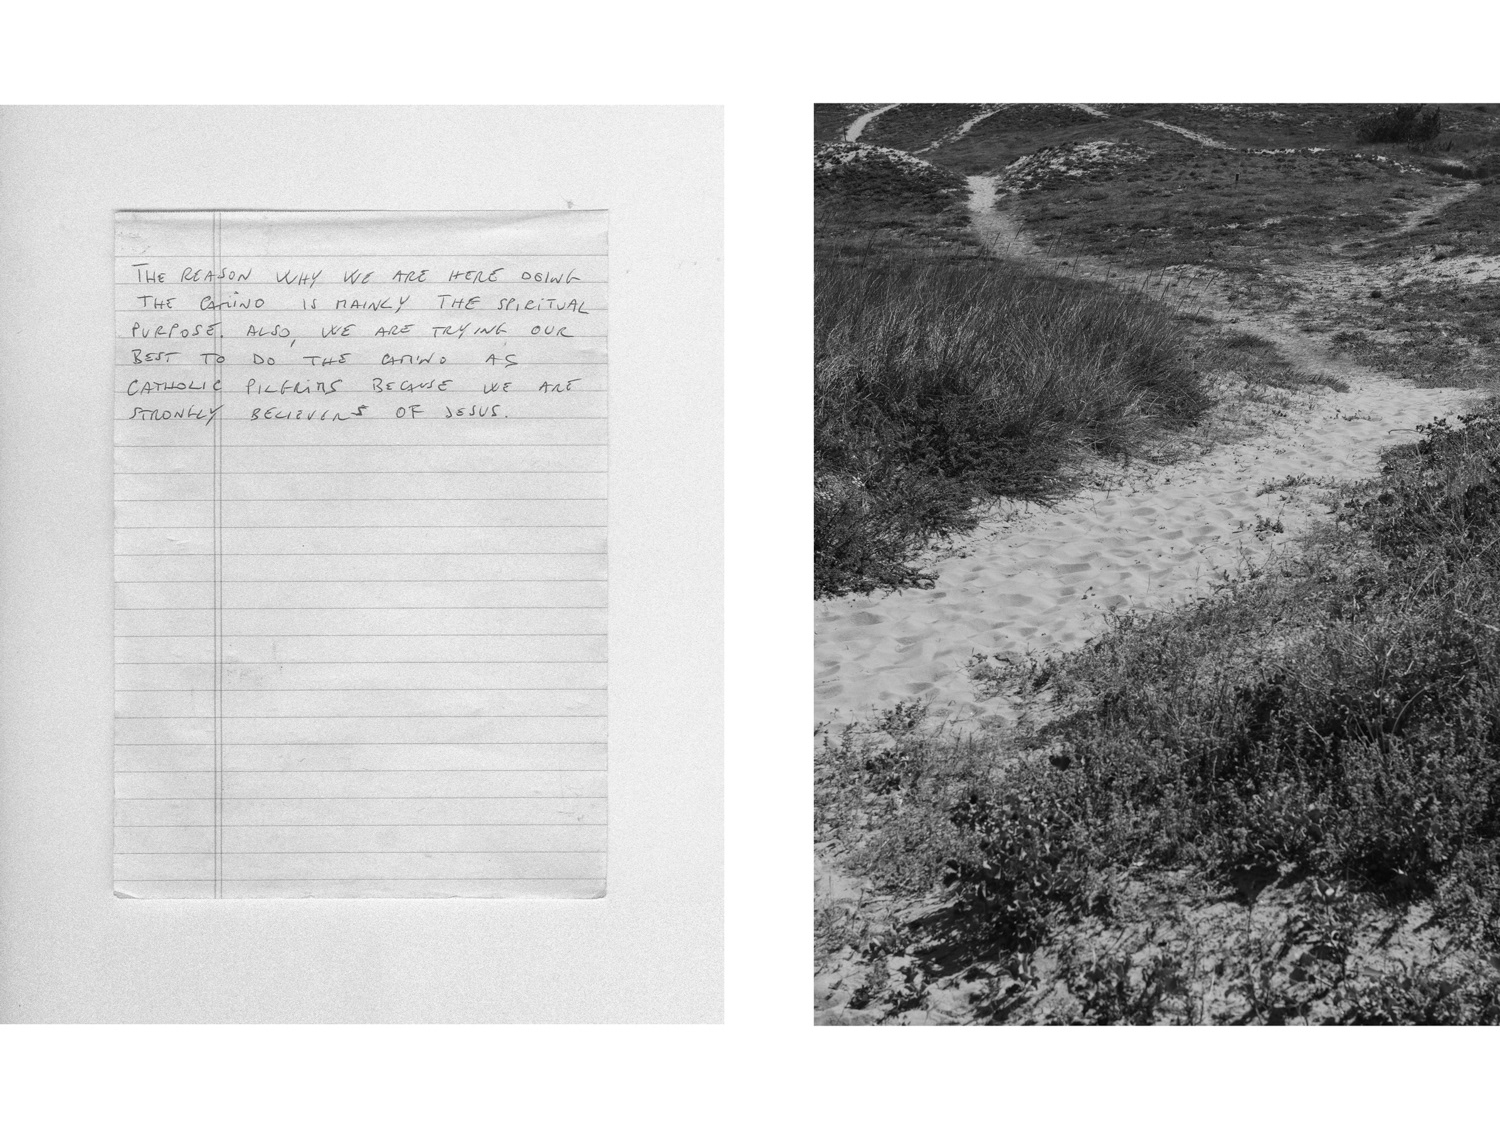 THE REASON WHY WE ARE HERE DOING
THE CAMINO IS MAINLY THE SPIRITUAL
PURPOSE. ALSO, WE ARE TRYING OUR
BEST TO DO THE CAMINO AS
CATHOLIC PILGRIMS BECAUSE WE ARE
STRONGLY BELIEVERS OF JESUS.